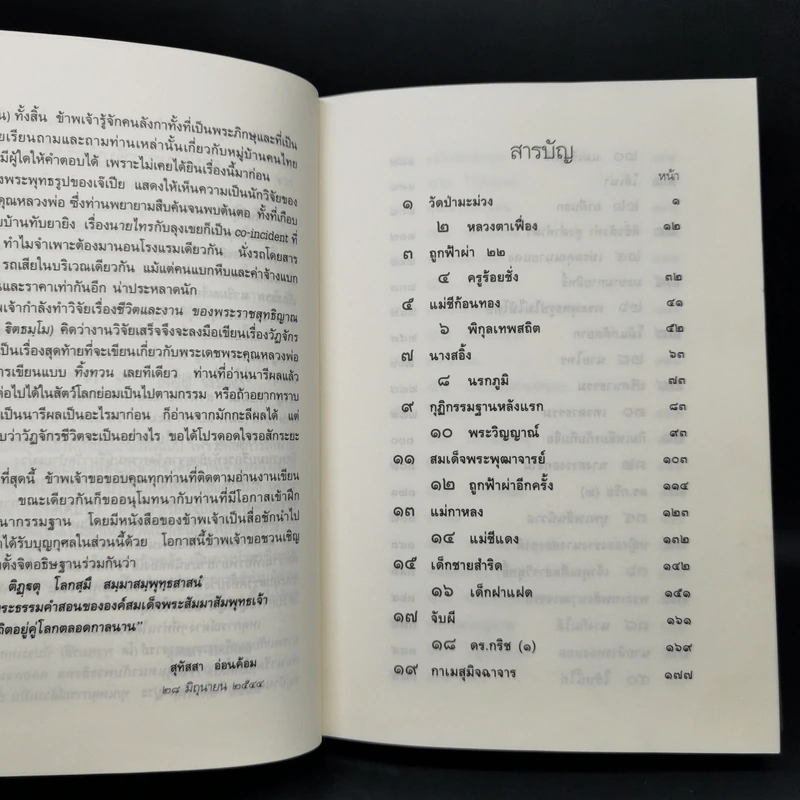 น) ทั้งสิ้น ข้าพเจ้ารู้จักคนลังกาทั้งที่เป็นพระภิกษุและที่เป็น
ยเรียนถามและถามท่านเหล่านั้นเกี่ยวกับหมู่บ้านคนไทย
มีผู้ใดให้คำตอบได้ เพราะไม่เคยได้ยินเรื่องนี้มาก่อน
งพระพุทธรูปของเจ๊เปีย แสดงให้เห็นความเป็นนักวิจัยของ
คุณหลวงพ่อ ซึ่งท่านพยายามสืบค้นจนพบต้นตอ ทั้งที่เกือบ
บบ้านทับยายิง เรื่องนายไทรกับลุงเขยก็เป็น co-incident ที่
ทำไมจำเพาะต้องมานอนโรงแรมเดียวกัน นั่งรถโดยสาร
รถเสียในบริเวณเดียวกัน แม้แต่คนแบกหีบและค่าจ้างแบก
นและราคาเท่ากันอีก น่าประหลาดนัก
พเจ้ากำลังทำวิจัยเรื่องชีวิตและงาน ของพระราชสุทธิญาณ
ฐิตธมฺโม) คิดว่างานวิจัยเสร็จจึงจะลงมือเขียนเรื่องวัฏจักร
เป็นเรื่องสุดท้ายที่จะเขียนเกี่ยวกับพระเดชพระคุณหลวงพ่อ
ารเขียนแบบ ทิ้งทวน เลยทีเดียว ท่านที่อ่านนารีผลแล้ว
ต่อไปได้ในสัตว์โลกย่อมเป็นไปตามกรรม หรือถ้าอยากทราบ
เป็นนารีผลเป็นอะไรมาก่อน ก็อ่านจากมักกะลีผลได้ แต่
บว่าวัฏจักรชีวิตจะเป็นอย่างไร ขอได้โปรดอดใจรอสักระยะ
ที่สุดนี้ ข้าพเจ้าขอขอบคุณทุกท่านที่ติดตามอ่านงานเขียน
ขณะเดียวกันก็ขออนุโมทนากับท่านที่มีโอกาสเข้าฝึก
นากรรมฐาน โดยมีหนังสือของข้าพเจ้าเป็นสื่อชักนำไป
าได้รับบุญกุศลในส่วนนี้ด้วย โอกาสนี้ข้าพเจ้าขอชวนเชิญ
งตั้งจิตอธิษฐานร่วมกันว่า
ติฏฺฐตุ โลกสฺมึ สมฺมาสมฺพุทฺธสาสนํ
ระธรรมคำสอนขององค์สมเด็จพระสัมมาสัมพุทธเจ้า
ถิตอยู่คู่โลกตลอดกาลนาน”
สุทัสสา อ่อนค้อม
๒๘ มิถุนายน ๒๕๔๔
สารบัญ
หน้า
๑ วัดป่ามะม่วง ๑
๒ หลวงตาเฟื่อง ๑๒
๓ ถูกฟ้าผ่า ๒๒
๔ ครูร้อยชั่ง ๓๒
๕ แม่ชีก้อนทอง ๔๑
๖ พิกุลเทพสถิต ๕๒
๗ นางสอิ้ง ๖๓
๘ นรกภูมิ ๗๓
๙ กุฏิกรรมฐานหลังแรก ๘๓
๑๐ พระวิญญาณ์ ๙๓
๑๑ สมเด็จพระพุฒาจารย์ ๑๐๓
๑๒ ถูกฟ้าผ่าอีกครั้ง ๑๑๔
๑๓ แม่กาหลง ๑๒๓
๑๔ แม่ชีแดง ๑๓๒
๑๕ เด็กชายสำริด ๑๔๒
๑๖ เด็กฝาแฝด ๑๕๑
๑๗ จับผี ๑๖๑
๑๘ ดร.กริช (๑) ๑๖๙
๑๙ กาเมสุมิจฉาจาร ๑๗๗